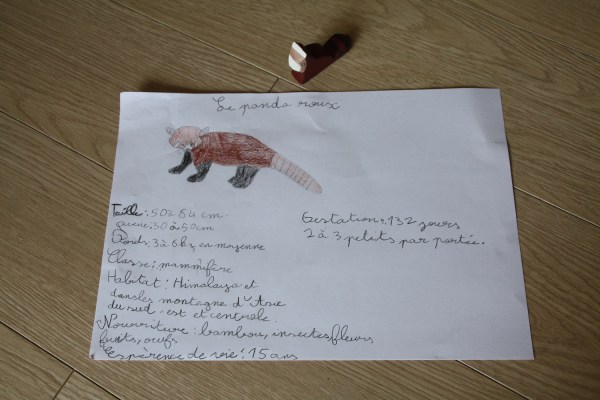 Le panda roux
Taille : 50 à 64 cm
queue : 30 à 50 cm
Poids : 3 à 6 kg en moyenne
Classe : mammifère
Habitat : Himalaya et
dans les montagne d'Asie
du sud-est et centrale.
Nourriture : bambou, insectes, fleurs,
fruits, œufs
éspérence de vie : 15 ans
Gestation : 132 jours
2 à 3 petits par portée.